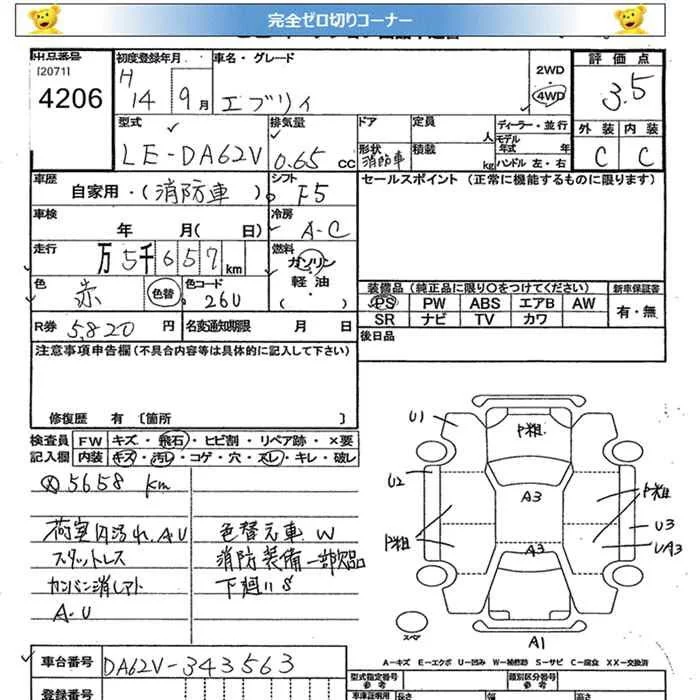 完全ゼロ切りコーナー
出品番号
[2071]
4206
初度登録年月
H
14 9月
車名・グレード
エブリィ
2WD
・
4WD
評価点
3.5
外装 内装
C C
型式
LE-DA62V
排気量
0.65 CC
ドア
形状
消防車
定員
人
積載
kg
ディーラー・並行
モデル
年式 年
ハンドル 左・右
車歴
自家用・(消防車)
シフト
F5
セールスポイント (正常に機能するものに限ります)
車検
年 月( 日)
冷房
A-C
走行
万5千657km
燃料
ガソリン
・
軽油
・
( )
色
赤
色替
色コード
26U
装備品 (純正品に限り○をつけてください)
新車保証書
PS PW ABS エアB AW
有・無
SR ナビ TV カワ
R券 5,820 円
名変通知期限 月 日
後日品
注意事項申告欄 (不具合内容等は具体的に記入して下さい)
修復歴 有 〔箇所 〕
検査員
記入欄
FW キズ・飛石・ヒビ割・リペア跡・×要
内装 キズ・汚レ・コゲ・穴・スレ・キレ・破レ
* 5658 km
荷室内汚れ、AU
スタットレス
カンバン消しアト
A-U
色替元車 W
消防装備一部欠品
下廻りS
U1
P粗
U2
A3
P粗
P粗
U3
A3
UA3
スペア
A1
A-キズ E-エクボ U-凹み W-補修跡 S-サビ C-腐食 XX-交換済
車台番号
DA62V-343563
登録番号
型式指定番号
参考
類別区分番号
参考
車庫証明用
長さ
幅
高さ